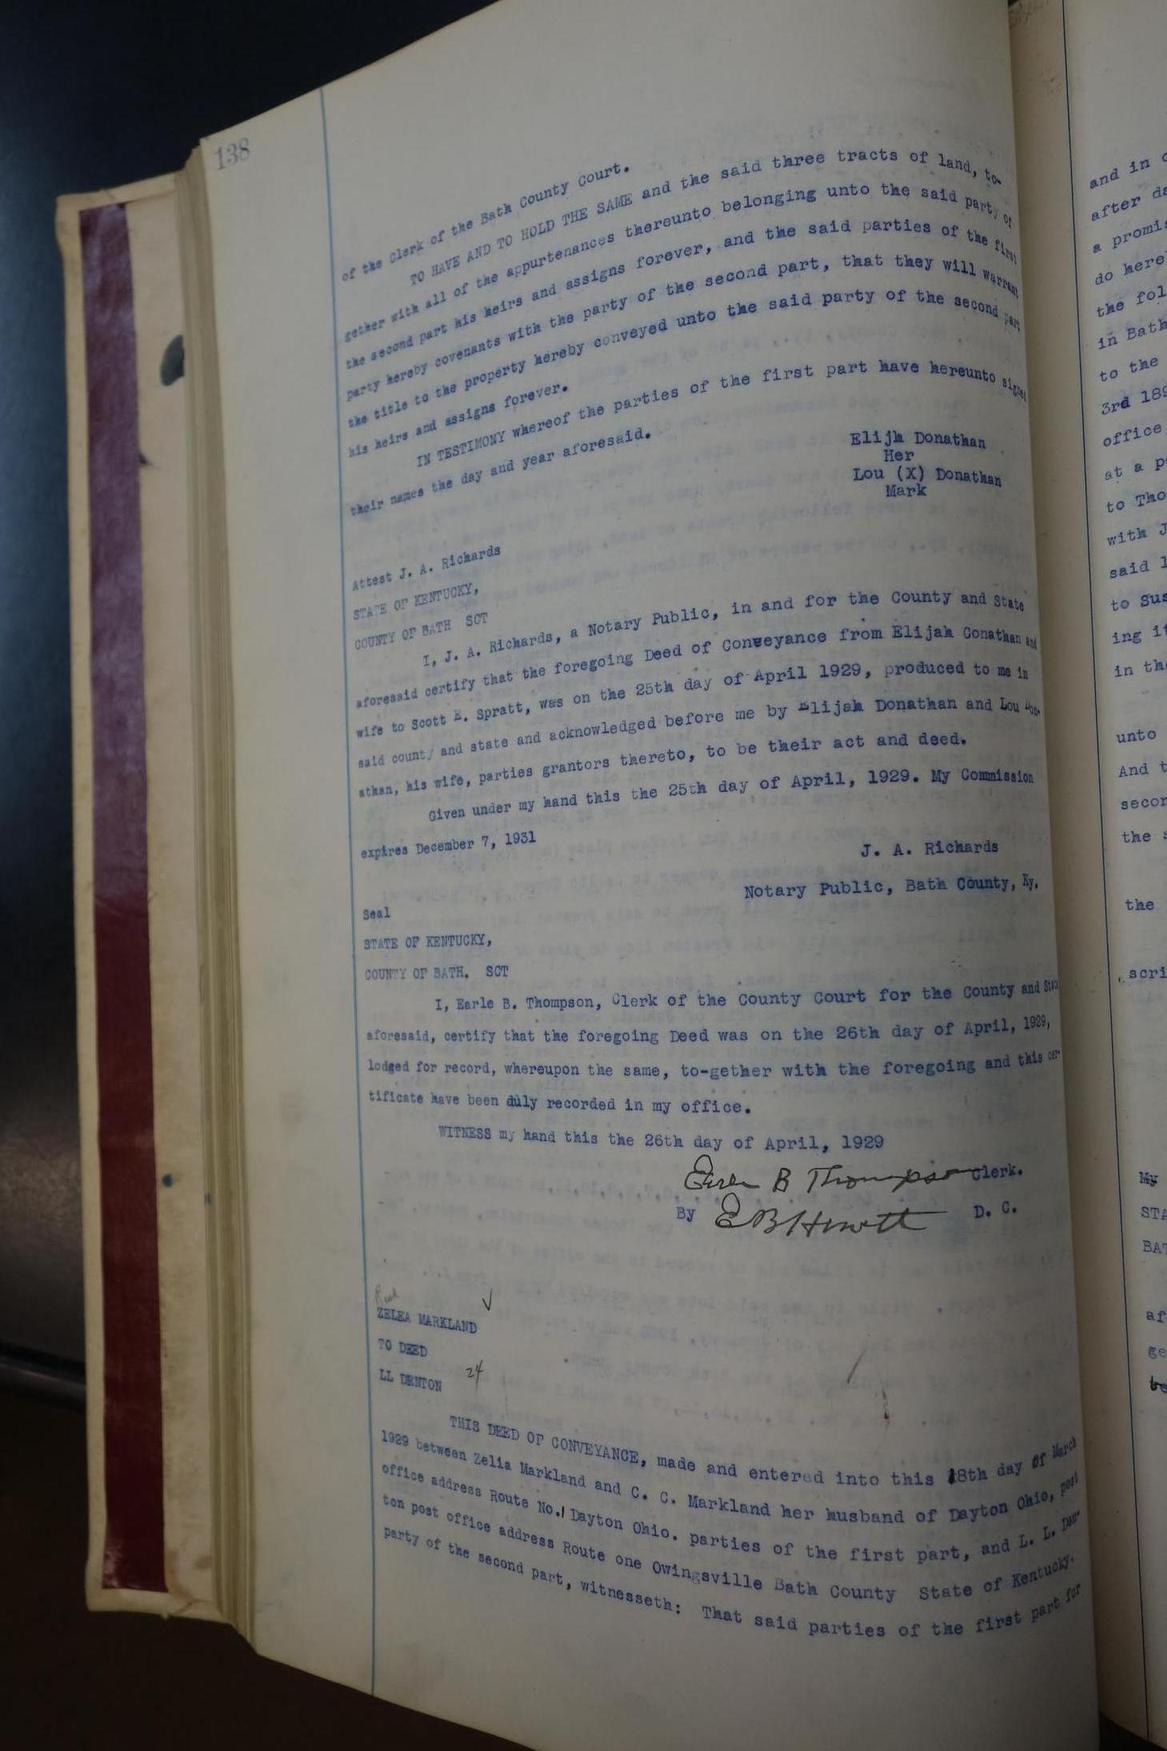 138
of the Clerk of the Bath County Court.
TO HAVE AND TO HOLD THE SAME and the said three tracts of land, to-
gether with all of the appurtenances thereunto belonging unto the said party of
the second part his heirs and assigns forever, and the said parties of the first
party hereby covenants with the party of the second part, that they will warrant
the title to the property hereby conveyed unto the said party of the second part
his heirs and assigns forever.
IN TESTIMONY whereof the parties of the first part have hereunto signed
their names the day and year aforesaid.
Elijh Donathan
Her
Lou (X) Donathan
Mark
Attest J. A. Richards
STATE OF KENTUCKY,
COUNTY OF BATH SCT
I, J. A. Richards, a Notary Public, in and for the County and State
aforesaid certify that the foregoing Deed of Conveyance from Elijah Conathan and
wife to Scott E. Spratt, was on the 25th day of April 1929, produced to me in
said county and state and acknowledged before me by Elijah Donathan and Lou Don-
athan, his wife, parties grantors thereto, to be their act and deed.
Given under my hand this the 25th day of April, 1929. My Commission
expires December 7, 1931
J. A. Richards
Notary Public, Bath County, Ky.
Seal
STATE OF KENTUCKY,
COUNTY OF BATH. SCT
I, Earle B. Thompson, Clerk of the County Court for the County and State
aforesaid, certify that the foregoing Deed was on the 26th day of April, 1929,
lodged for record, whereupon the same, to-gether with the foregoing and this cer-
tificate have been duly recorded in my office.
WITNESS my hand this the 26th day of April, 1929
Earle B Thompson Clerk.
By E B Hewitt D. C.
ZELEA MARKLAND
TO DEED
LL DENTON 24
THIS DEED OF CONVEYANCE, made and entered into this 18th day of March
1929 between Zelia Markland and C. C. Markland her husband of Dayton Ohio, post
office address Route No.1 Dayton Ohio. parties of the first part, and L. L. Den-
ton post office address Route one Owingsville Bath County State of Kentucky.
party of the second part, witnesseth: That said parties of the first part for
and in
after
a promis
do here
the fol
in Bath
to the
3rd 189
office
at a p
to Tho
with J
said l
to Sus
ing it
in the
unto
And t
secon
the s
the
scri
My
STA
BAT
af
ge